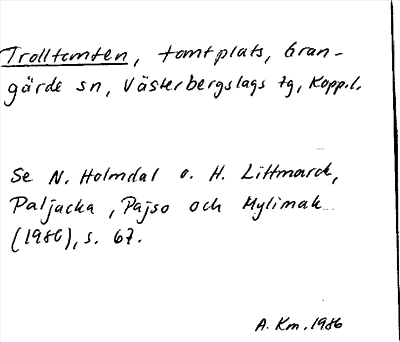 Trolltomten, tomtplats, Gran-
gärde sn, Västerbergslags tg, Kopp.l.
Se N. Holmdal o. H. Littmarck,
Paljacka, Pajso och Mylimak...
(1986), s. 67.
A. Km. 1986